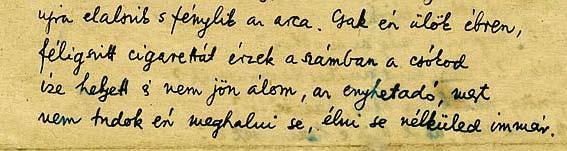 ujra elalszik s fénylik az arca. Csak én ülök ébren,
féligszítt cigarettát érzek a számban a csókod
íze helyett s nem jön álom, az enyhetadó, mert
nem tudok én meghalni se, élni se nélküled immár.